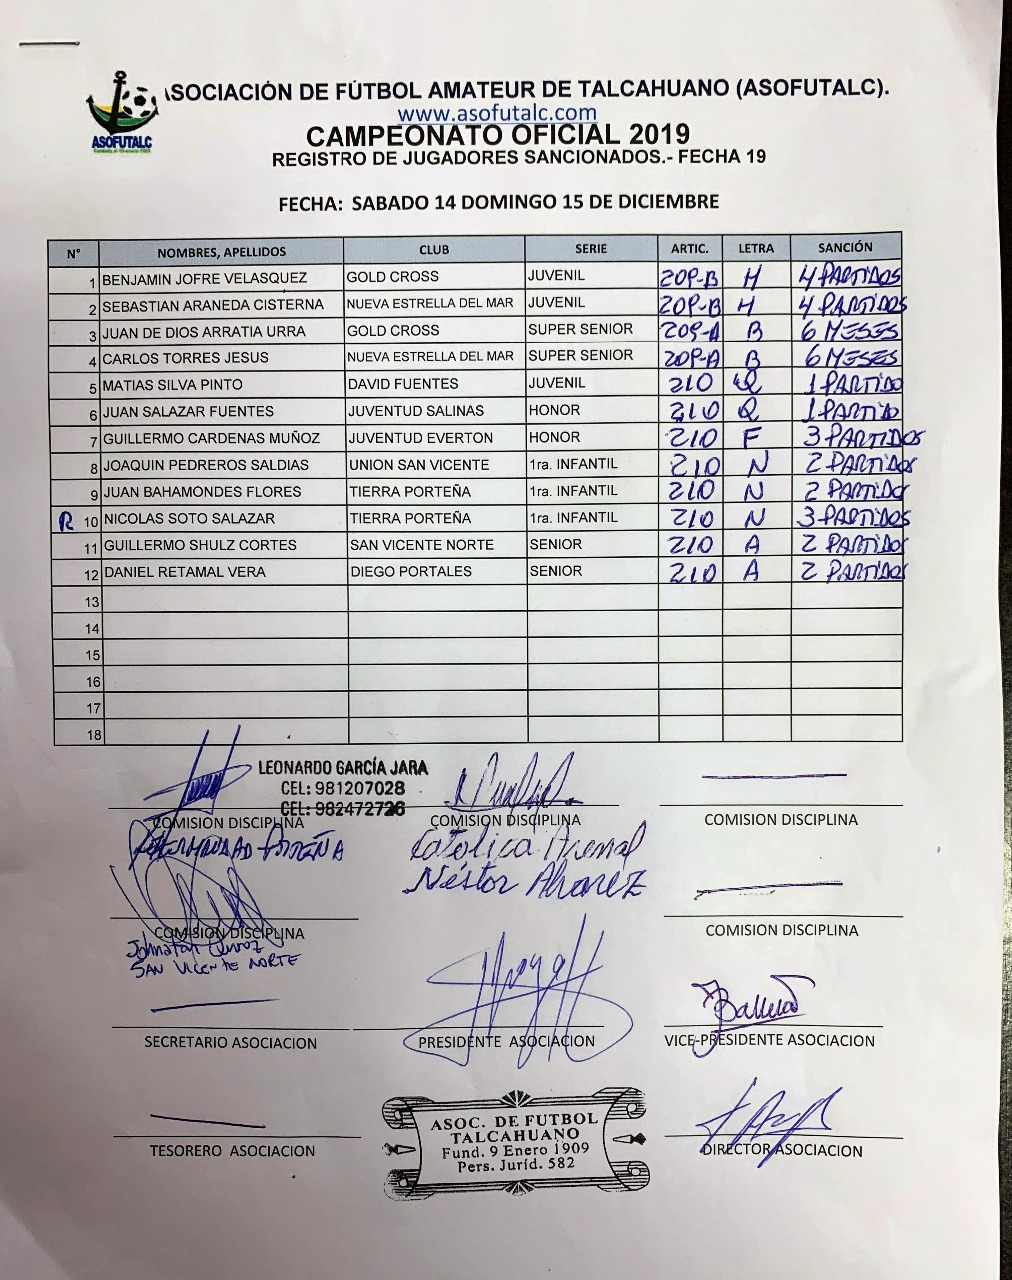 ASOCIACIÓN DE FÚTBOL AMATEUR DE TALCAHUANO (ASOFUTALC).
www.asofutalc.com
ASOFUTALC
CAMPEONATO OFICIAL 2019
REGISTRO DE JUGADORES SANCIONADOS.- FECHA 19
FECHA: SABADO 14 DOMINGO 15 DE DICIEMBRE
N° NOMBRES, APELLIDOS CLUB SERIE ARTIC. LETRA SANCIÓN
1 BENJAMIN JOFRE VELASQUEZ GOLD CROSS JUVENIL 209-B H 4 PARTIDOS
2 SEBASTIAN ARANEDA CISTERNA NUEVA ESTRELLA DEL MAR JUVENIL 209-B H 4 PARTIDOS
3 JUAN DE DIOS ARRATIA URRA GOLD CROSS SUPER SENIOR 209-A B 6 MESES
4 CARLOS TORRES JESUS NUEVA ESTRELLA DEL MAR SUPER SENIOR 209-A B 6 MESES
5 MATIAS SILVA PINTO DAVID FUENTES JUVENIL 210 Q 1 PARTIDO
6 JUAN SALAZAR FUENTES JUVENTUD SALINAS HONOR 210 Q 1 PARTIDO
7 GUILLERMO CARDENAS MUÑOZ JUVENTUD EVERTON HONOR 210 F 3 PARTIDOS
8 JOAQUIN PEDREROS SALDIAS UNION SAN VICENTE 1ra. INFANTIL 210 N 2 PARTIDOS
9 JUAN BAHAMONDES FLORES TIERRA PORTEÑA 1ra. INFANTIL 210 N 2 PARTIDOS
R 10 NICOLAS SOTO SALAZAR TIERRA PORTEÑA 1ra. INFANTIL 210 N 3 PARTIDOS
11 GUILLERMO SHULZ CORTES SAN VICENTE NORTE SENIOR 210 A 2 PARTIDOS
12 DANIEL RETAMAL VERA DIEGO PORTALES SENIOR 210 A 2 PARTIDOS
13
14
15
16
17
18
LEONARDO GARCÍA JARA
CEL: 981207028
CEL: 982472726
COMISION DISCIPLINA COMISION DISCIPLINA COMISION DISCIPLINA
PORTEÑA Católica Arenal
Néstor Alvarez
COMISION DISCIPLINA COMISION DISCIPLINA
SAN VICENTE NORTE
SECRETARIO ASOCIACION PRESIDENTE ASOCIACION VICE-PRESIDENTE ASOCIACION
ASOC. DE FUTBOL
TALCAHUANO
Fund. 9 Enero 1909
Pers. Juríd. 582
TESORERO ASOCIACION DIRECTOR ASOCIACION